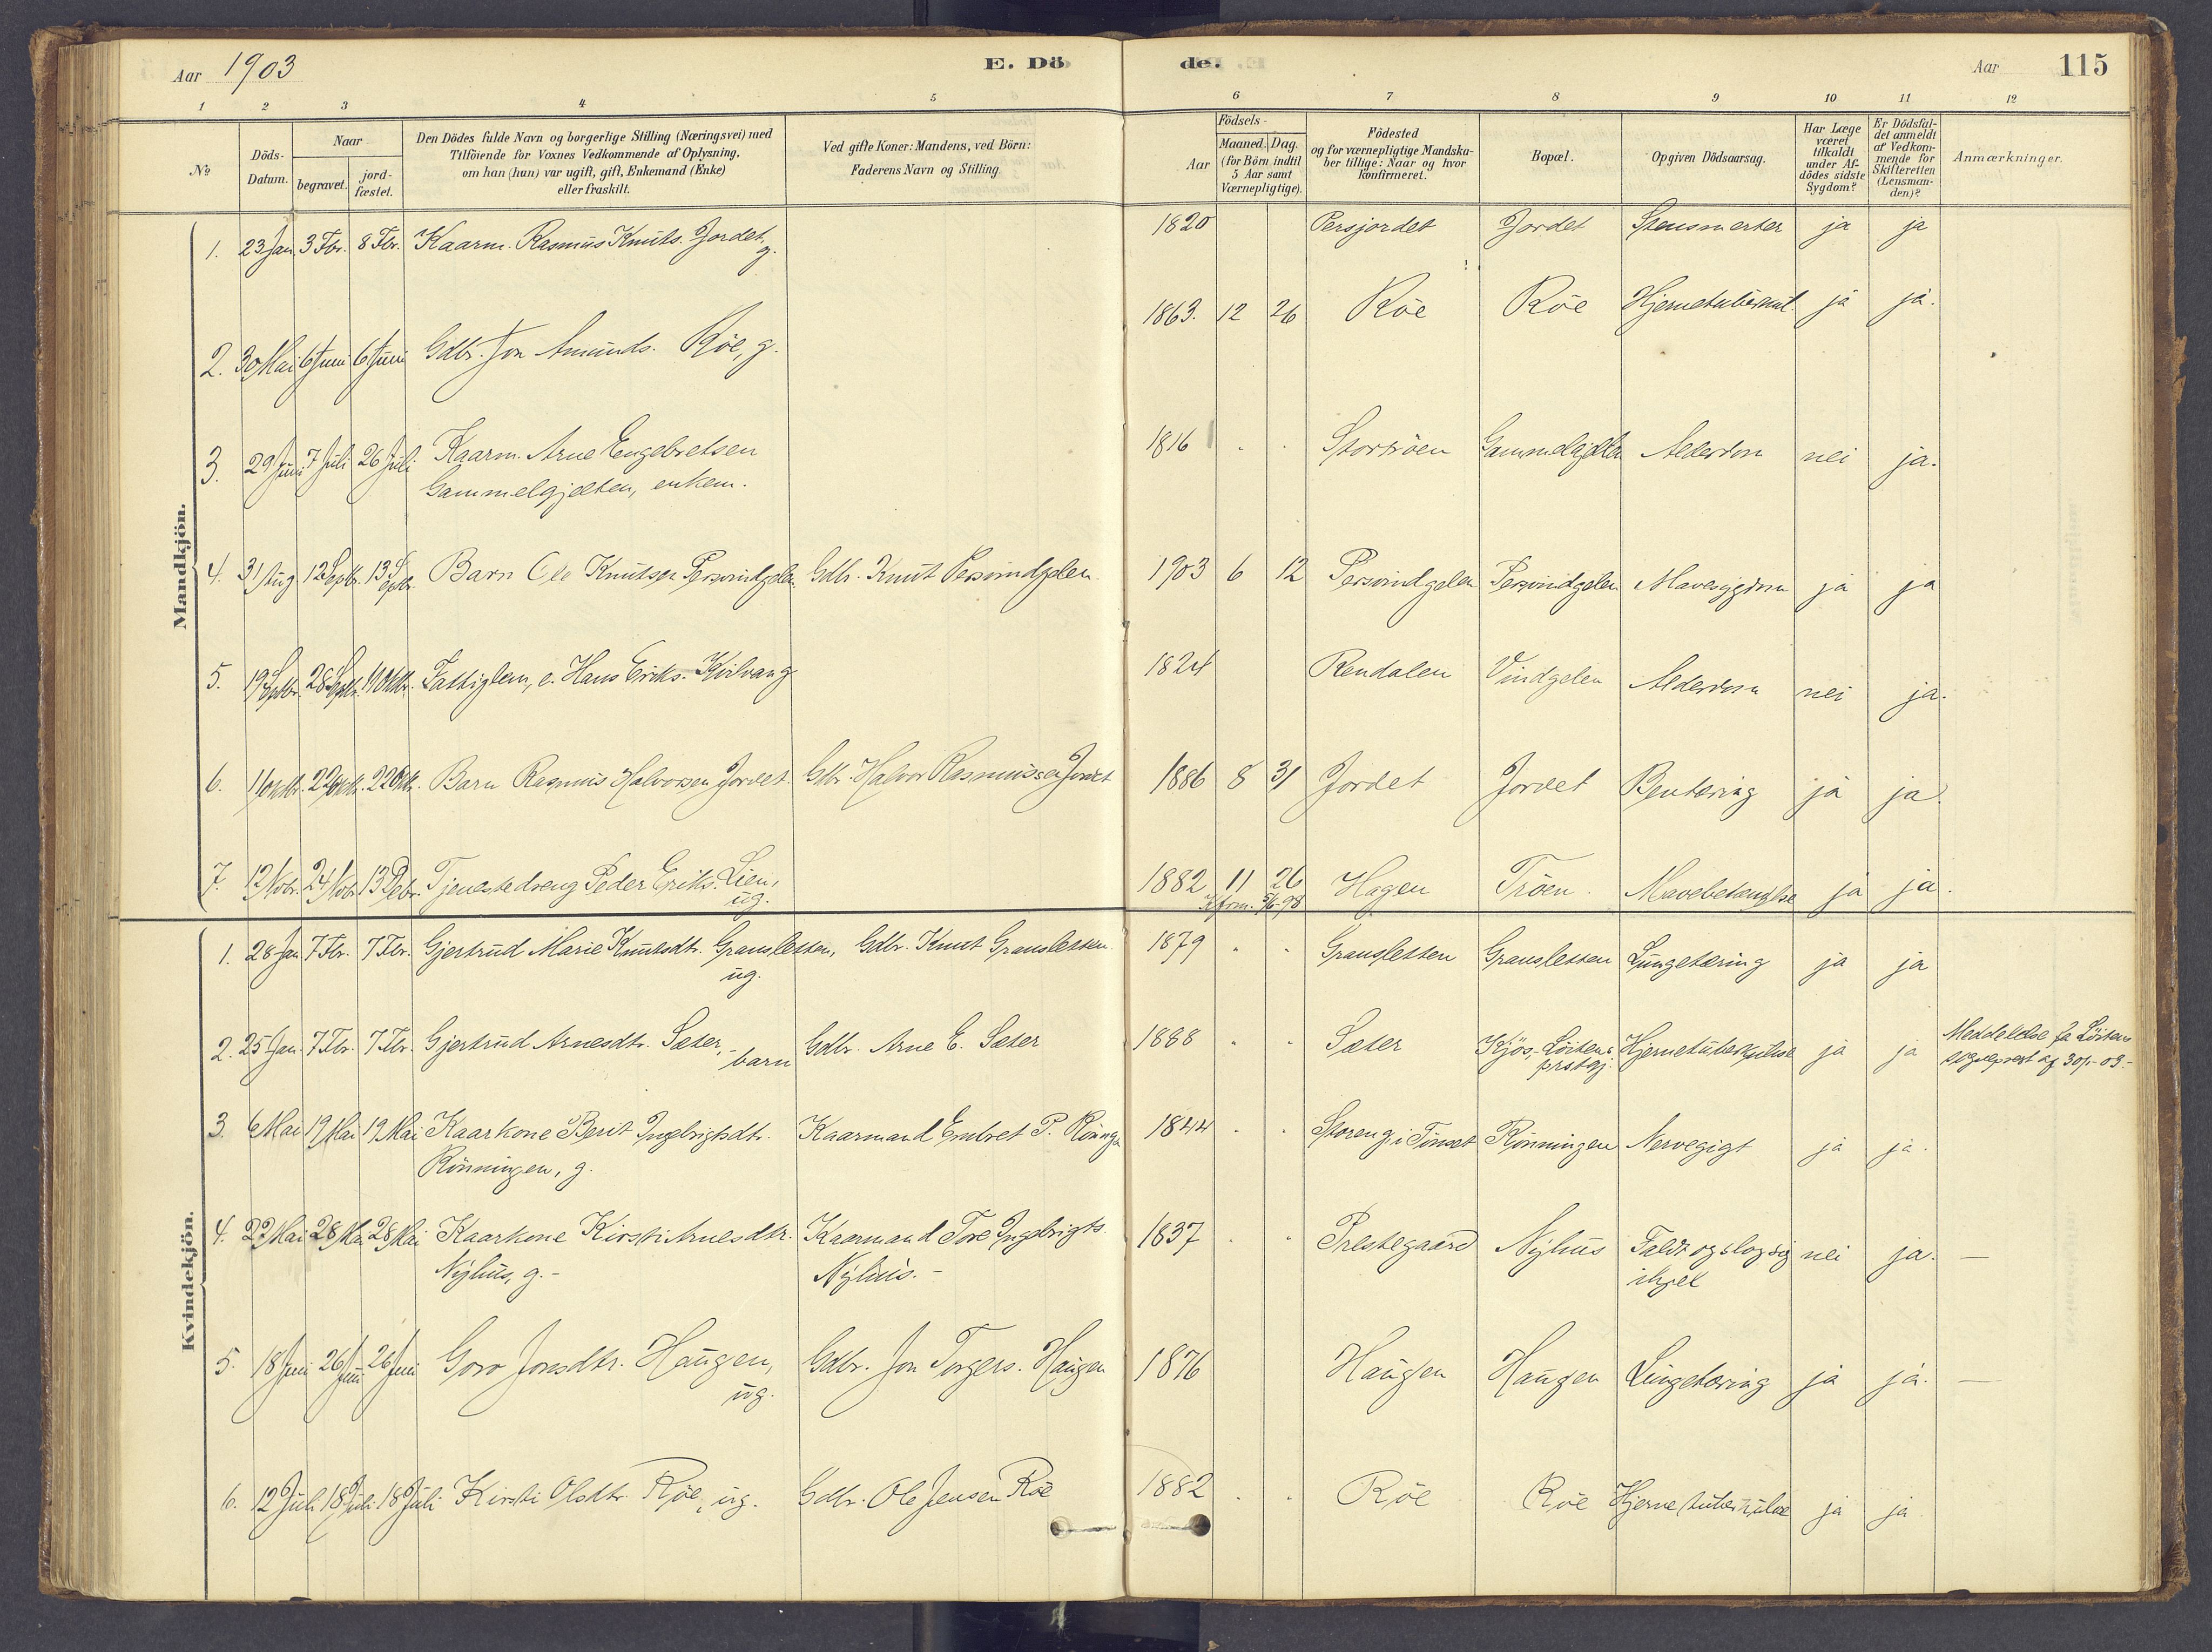 Aar 1903
E. Dö
de.
Aar
115
1 2 3 4 5 6 7 8 9 10 11 12
No
Döds-
Datum.
Naar
begravet.
jord-
fæstet.
Den Dödes fulde Navn og borgerlige Stilling (Næringsvei) med
Tilföiende for Voxnes Vedkommende af Oplysning,
om han (hun) var ugift, gift, Enkemand (Enke)
eller fraskilt.
Ved gifte Koner: Mandens, ved Börn:
Faderens Navn og Stilling.
Födsels-
Aar
Maaned. Dag.
(for Börn indtil
5 Aar samt
Værnepligtige).
Födested
og for værnepligtige Mandska-
ber tillige: Naar og hvor
konfirmeret.
Bopæl.
Opgiven Dödsaarsag.
Har Læge
været
tilkaldt
under Af-
dödes sidste
Sygdom?
Er Dödsfal-
det anmeldt
af Vedkom-
mende for
Skifteretten
(Lensman-
den)?
Anmærkninger.
Mandkjön.
1. 23 Jan 3 Fbr. 8 Fbr. Kaarm. Rasmus Knuts. Jordet, g. 1820 Persjordet Jordet Stensmerter ja ja
2. 30 Mai 6 Juni 6 Juni Gdbr. Jon Amunds. Röe, g. 1863. 12 26 Röe Röe ja ja.
3. 29 Juni 7 Juli 26 Juli Kaarm. Arne Engebretsen
Gammelgjelten, enkem. 1816 Stortröen Alderdom nei ja.
4. 31 Aug 12 Septb. 13 Septbr. Barn Ole Knutsen Persvindgelen Gdb. Knut Persvindgelen 1903 6 12 Persvindgelen Persvindgelen Mavesygdom ja ja
5. 19 Septbr. 28 Septbr. Fattiglem, e. Hans Eriks. Kvilvang 1824 Rendalen Vindgelen Alderdom nei ja.
6. 11 oktbr. 22 oktb. 22 Oktb. Barn Rasmus Halvorsen Jordet. Gdbr. Halvor Rasmussen Jordet 1886 8 31 Jordet Jordet Bentæring ja ja.
7. 12 Novbr. 24 Novbr 13 Debr. Tjenestedreng Peder Eriks. Lien,
ug. 1882 11 26 Hagen Tröen. Mavebetændelse ja ja.
Kfrm. 5/6-98
Kvindekjön.
1. 28 Jan 7 Fbr. 7 Fbr. Gjertrud Marie Knutsdtr. Gransletten, Gdbr. Knut Gransletten
ug. 1879 Gransletten Gransletten Lungetæring ja ja
2. 25 Jan. 7 Fbr. 7 Fbr. Gjertrud Arnesdtr. Sæter,
barn Gdbr. Arne E. Sæter 1888 Sæter Kjös, Löitens
prstgj. Hjernetuberkulose ja ja Meddelelse fra Löitens
sogneprest af 30/1-03.-
3. 6 Mai 19 Mai 19 Mai Kaarkone Berit Ingebrigtsdtr.
Rönningen, g. Kaarmand Embret P. 1844 Storeng i Tönset Rönningen Nervegigt ja ja.
4. 22 Mai 28 Mai 28 Mai Kaarkone Kirsti Arnesdtr.
Nyhus, g.- Kaarmand Tore Ingebrigts.
Nyhus.- 1837 Prestegaard Nyhus Faldt og slog sig
ihjel nei ja. —
5. 18 Juni 26 Juni 26 Juni Goro Jonsdtr. Haugen,
ug. Gdbr. Jon Torgers. Haugen 1876 Haugen Haugen Lungetæring ja ja. —
6. 12 Juli 18 Juli 18 Juli Kirsti Olsdtr. Röe, ug. Gdbr. Ole Jensen Röe 1882 Röe Röe Hjernetuberkulose ja ja